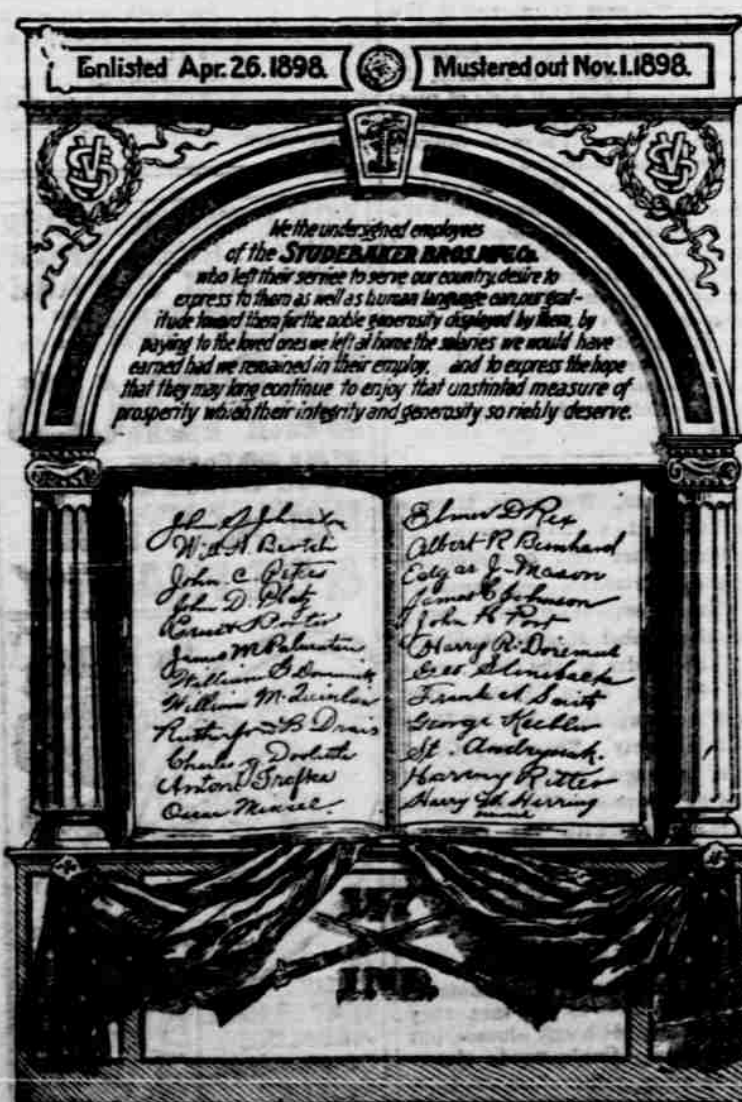 Enlisted Apr. 26. 1898.
Mustered out Nov. 1. 1898.
We the undersigned employees
of the STUDEBAKER BROS. MFG. Co.
who left their service to serve our country, desire to
express to them as well as human language can, our grat-
itude toward them for the noble generosity displayed by them, by
paying to the loved ones we left at home the salaries we would have
earned had we remained in their employ, and to express the hope
that they may long continue to enjoy that unstinted measure of
prosperity which their integrity and generosity so richly deserve.
John Johnston
Will H.
John C.
John D. Platz
Ernest Porter
James M
William G
William M. Quinlan
Rutherford B Drais
Charles
Anton
Oscar
Elmer D Rex
Albert R Bernhard
Edgar J. Mason
James E Johnson
John
Harry R. Doremus
Geo.
Frank A Smith
George Keebler
St.
Harvey Ritter
Harry Herring
IND.